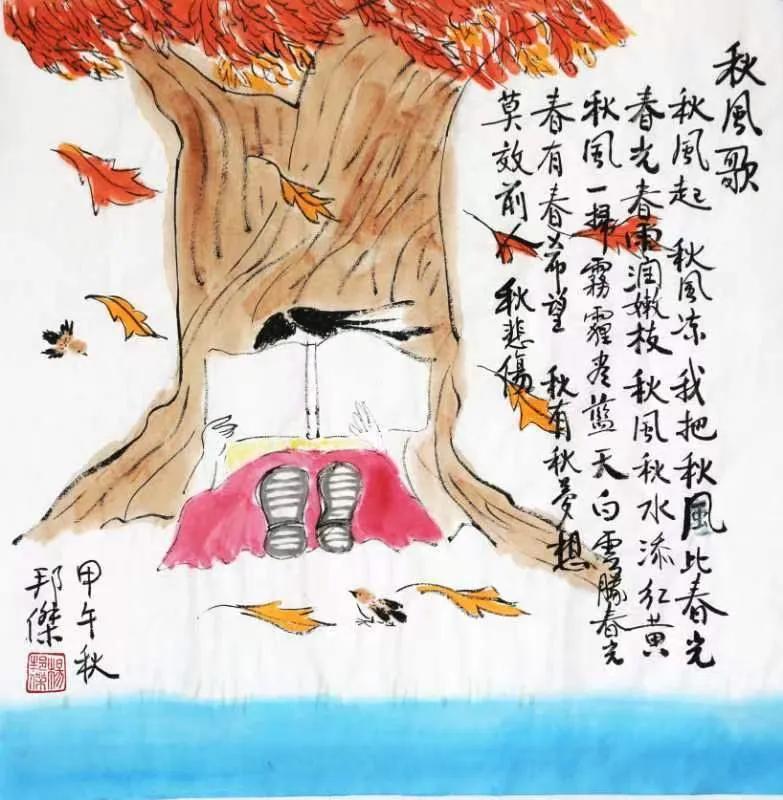 秋風歌
秋風起 秋风凉 我把秋風比春光
春光春雨润嫩枝 秋风秋水添红黄
秋風一掃霧霾尽 藍天白雲勝春光
春有春希望 秋有秋夢想
莫效前人秋悲傷
甲午秋
邦傑
楊邦傑